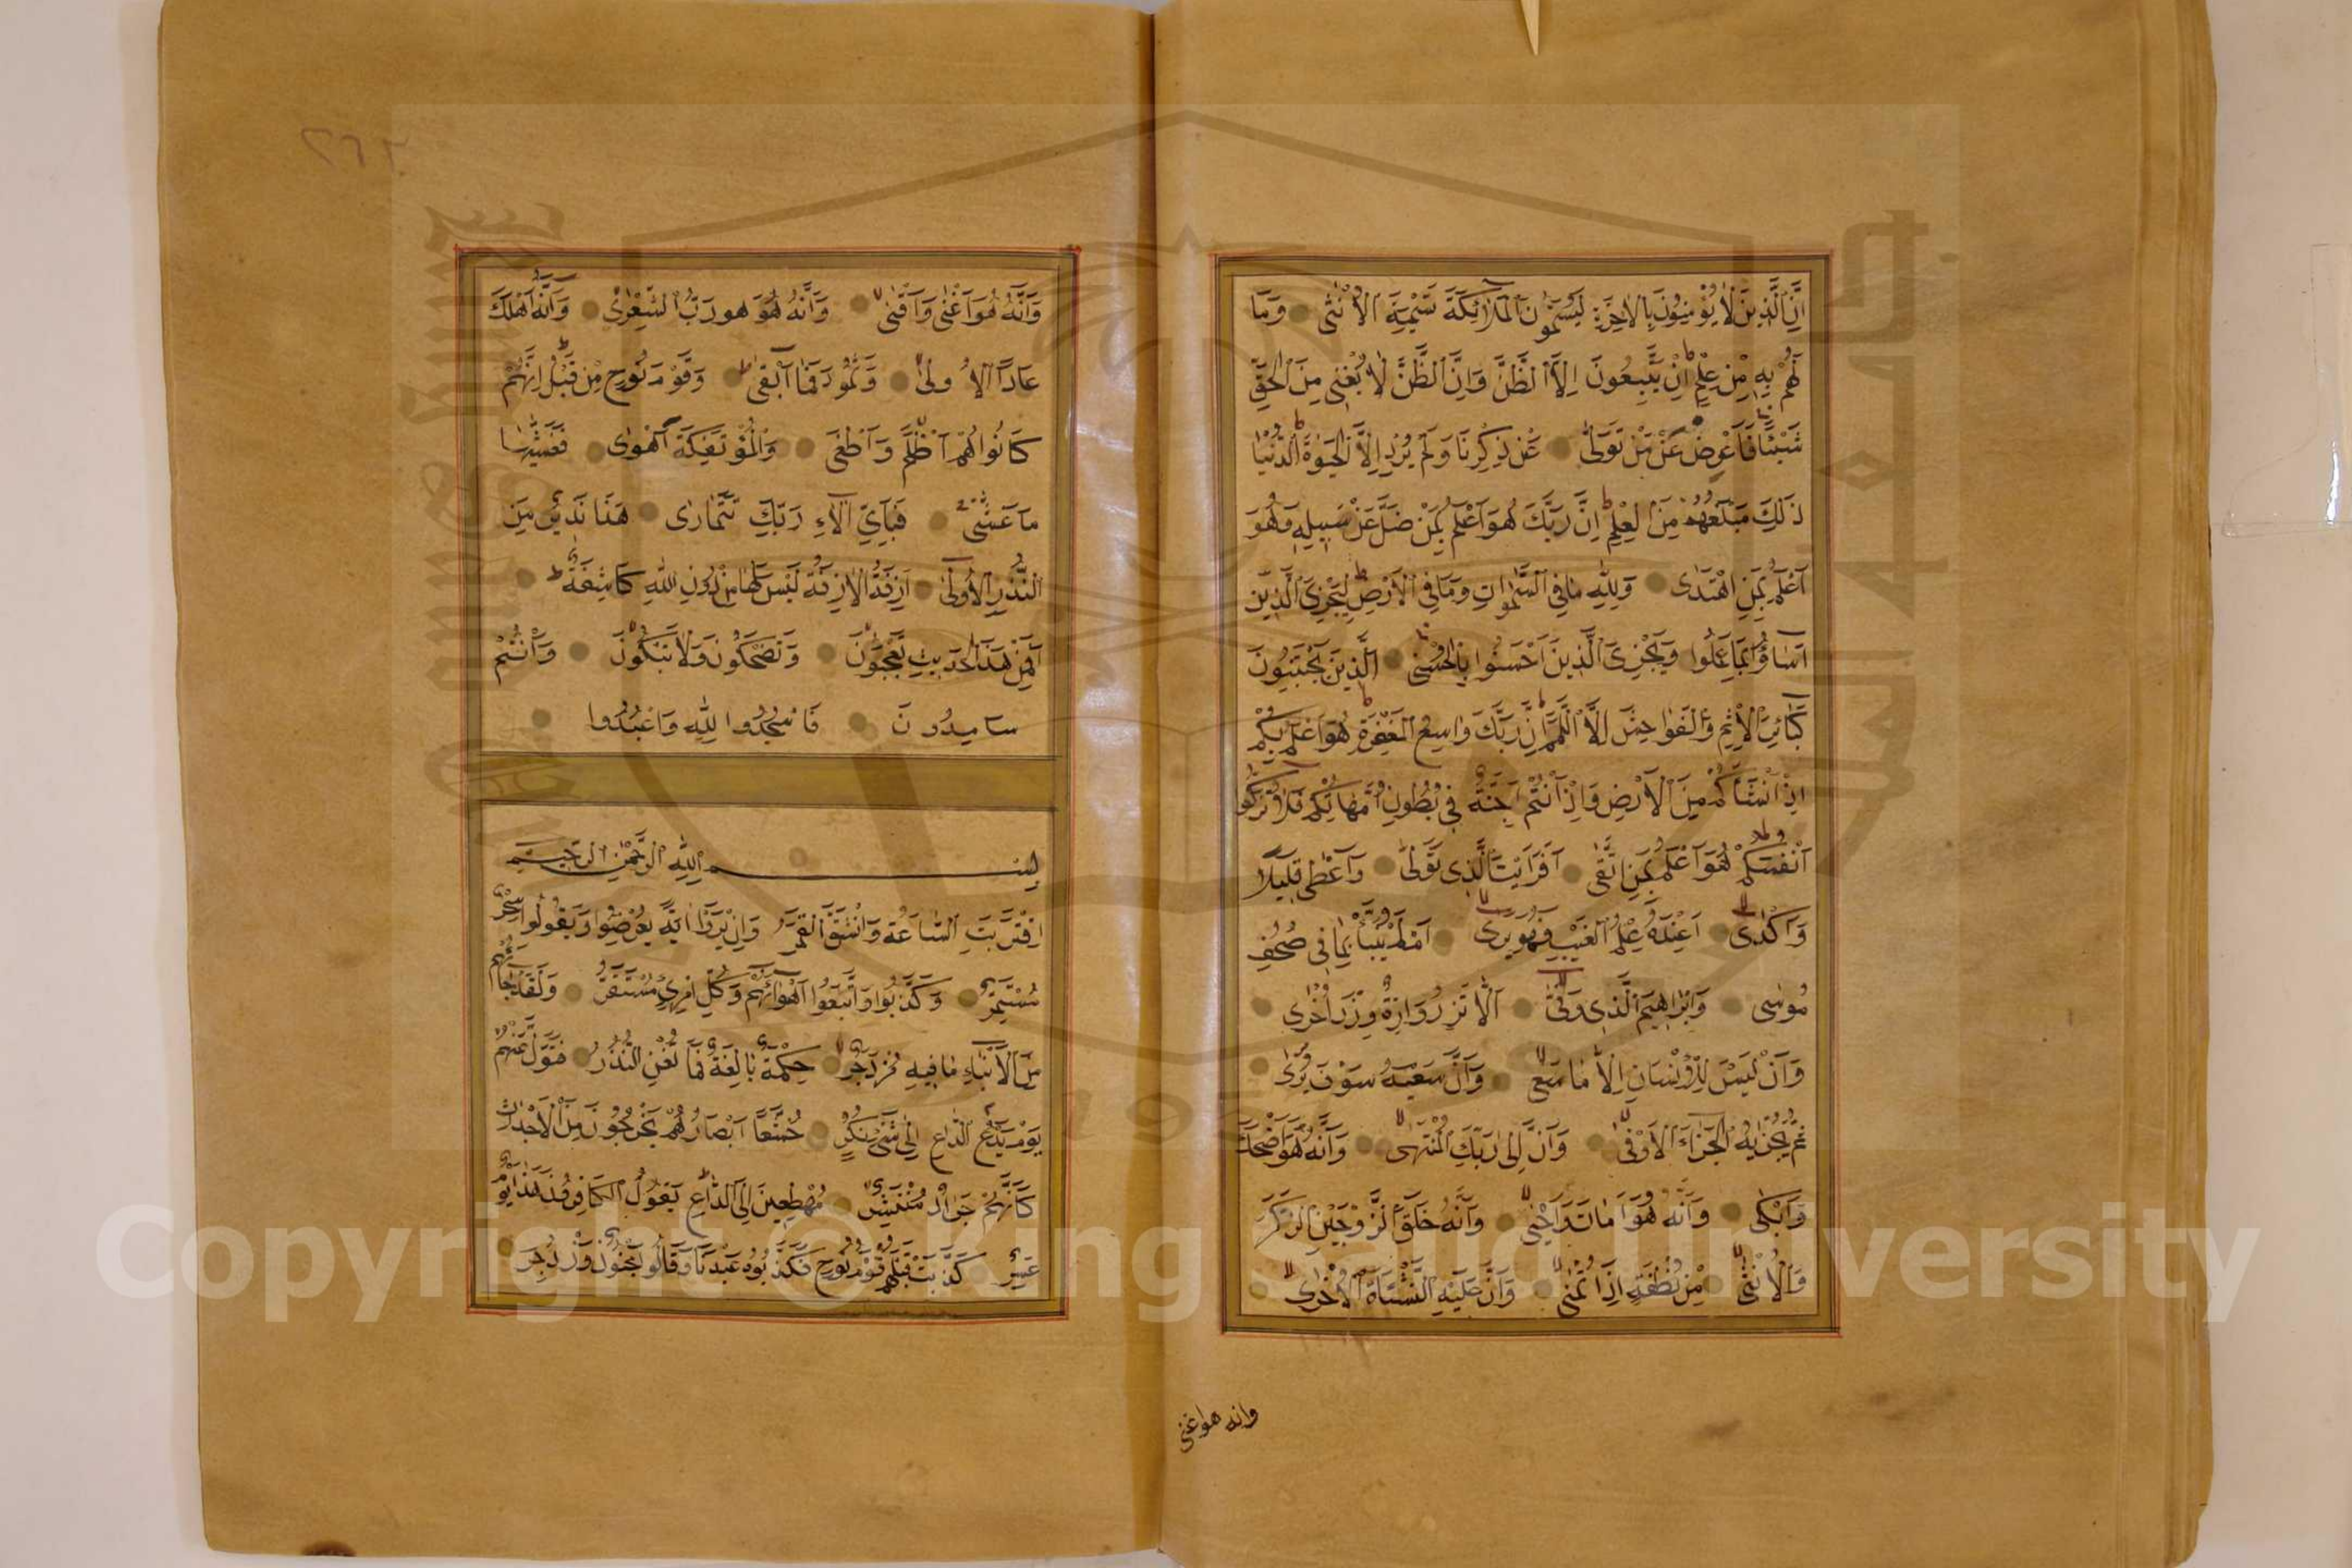 اِنَّ الَّذِينَ لَا يُؤْمِنُونَ بِالْاٰخِرَةِ لَيُسَمُّونَ الْمَلٰٓائِكَةَ تَسْمِيَةَ الْاُنْثٰى وَمَا
لَهُمْ بِهِ مِنْ عِلْمٍ اِنْ يَتَّبِعُونَ اِلَّا الظَّنَّ وَاِنَّ الظَّنَّ لَا يُغْنِى مِنَ الْحَقِّ
شَيْئًا فَاَعْرِضْ عَنْ مَنْ تَوَلّٰى عَنْ ذِكْرِنَا وَلَمْ يُرِدْ اِلَّا الْحَيٰوةَ الدُّنْيَا
ذٰلِكَ مَبْلَغُهُمْ مِنَ الْعِلْمِ اِنَّ رَبَّكَ هُوَ اَعْلَمُ بِمَنْ ضَلَّ عَنْ سَبِيلِهِ وَهُوَ
اَعْلَمُ بِمَنِ اهْتَدٰى وَلِلّٰهِ مَا فِى السَّمٰوَاتِ وَمَا فِى الْاَرْضِ لِيَجْزِىَ الَّذِينَ
اَسَاؤُا بِمَا عَمِلُوا وَيَجْزِىَ الَّذِينَ اَحْسَنُوا بِالْحُسْنٰى اَلَّذِينَ يَجْتَنِبُونَ
كَبَائِرَ الْاِثْمِ وَالْفَوَاحِشَ اِلَّا اللَّمَمَ اِنَّ رَبَّكَ وَاسِعُ الْمَغْفِرَةِ هُوَ اَعْلَمُ بِكُمْ
اِذْ اَنْشَاَكُمْ مِنَ الْاَرْضِ وَاِذْ اَنْتُمْ اَجِنَّةٌ فِى بُطُونِ اُمَّهَاتِكُمْ فَلَا تُزَكُّوا
اَنْفُسَكُمْ هُوَ اَعْلَمُ بِمَنِ اتَّقٰى اَفَرَاَيْتَ الَّذِى تَوَلّٰى وَاَعْطٰى قَلِيلًا
وَاَكْدٰى اَعِنْدَهُ عِلْمُ الْغَيْبِ فَهُوَ يَرٰى اَمْ لَمْ يُنَبَّأْ بِمَا فِى صُحُفِ
مُوسٰى وَاِبْرٰاهِيمَ الَّذِى وَفّٰى اَلَّا تَزِرُ وَازِرَةٌ وِزْرَ اُخْرٰى
وَاَنْ لَيْسَ لِلْاِنْسَانِ اِلَّا مَا سَعٰى وَاَنَّ سَعْيَهُ سَوْفَ يُرٰى
ثُمَّ يُجْزٰيهُ الْجَزَاءَ الْاَوْفٰى وَاَنَّ اِلٰى رَبِّكَ الْمُنْتَهٰى وَاَنَّهُ هُوَ اَضْحَكَ
وَاَبْكٰى وَاَنَّهُ هُوَ اَمَاتَ وَاَحْيٰى وَاَنَّهُ خَلَقَ الزَّوْجَيْنِ الذَّكَرَ
وَالْاُنْثٰى مِنْ نُطْفَةٍ اِذَا تُمْنٰى وَاَنَّ عَلَيْهِ النَّشْاَةَ الْاُخْرٰى
وانه هو اغنى
٢٦٢
وَاَنَّهُ هُوَ اَغْنٰى وَاَقْنٰى وَاَنَّهُ هُوَ هو رَبُّ الشِّعْرٰى وَاَنَّهُ اَهْلَكَ
عَادًا الْاُولٰى وَثَمُودَ فَمَا اَبْقٰى وَقَوْمَ نُوحٍ مِنْ قَبْلُ اِنَّهُمْ
كَانُوا هُمْ اَظْلَمَ وَاَطْغٰى وَالْمُؤْتَفِكَةَ اَهْوٰى فَغَشّٰيهَا
مَا غَشّٰى فَبِاَىِّ اٰلَاءِ رَبِّكَ تَتَمَارٰى هٰذَا نَذِيرٌ مِنَ
النُّذُرِ الْاُولٰى اَزِفَةُ الْاٰزِفَةُ لَيْسَ لَهَا مِنْ دُونِ اللّٰهِ كَاشِفَةٌ
اَفَمِنْ هٰذَا الْحَدِيثِ تَعْجَبُونَ وَتَضْحَكُونَ وَلَا تَبْكُونَ وَاَنْتُمْ
سَامِدُونَ فَاسْجُدُوا لِلّٰهِ وَاعْبُدُوا
بِسْمِ اللّٰهِ الرَّحْمٰنِ الرَّحِيمِ
اِقْتَرَبَتِ السَّاعَةُ وَانْشَقَّ الْقَمَرُ وَاِنْ يَرَوْا اٰيَةً يُعْرِضُوا وَيَقُولُوا سِحْرٌ
مُسْتَمِرٌّ وَكَذَّبُوا وَاتَّبَعُوا اَهْوَائَهُمْ وَكُلُّ اَمْرٍ مُسْتَقِرٌّ وَلَقَدْ جَاءَهُمْ
مِنَ الْاَنْبَاءِ مَا فِيهِ مُزْدَجَرٌ حِكْمَةٌ بَالِغَةٌ فَمَا تُغْنِ النُّذُرُ فَتَوَلَّ عَنْهُمْ
يَوْمَ يَدْعُ الدَّاعِ اِلٰى شَىْءٍ نُكُرٍ خُشَّعًا اَبْصَارُهُمْ يَخْرُجُونَ مِنَ الْاَجْدَاثِ
كَاَنَّهُمْ جَرَادٌ مُنْتَشِرٌ مُهْطِعِينَ اِلَى الدَّاعِ يَقُولُ الْكَافِرُونَ هٰذَا يَوْمٌ
عَسِرٌ كَذَّبَتْ قَبْلَهُمْ قَوْمُ نُوحٍ فَكَذَّبُوهُ عَبْدَنَا وَقَالُوا مَجْنُونٌ وَازْدُجِرَ
Copyright © King Saud University